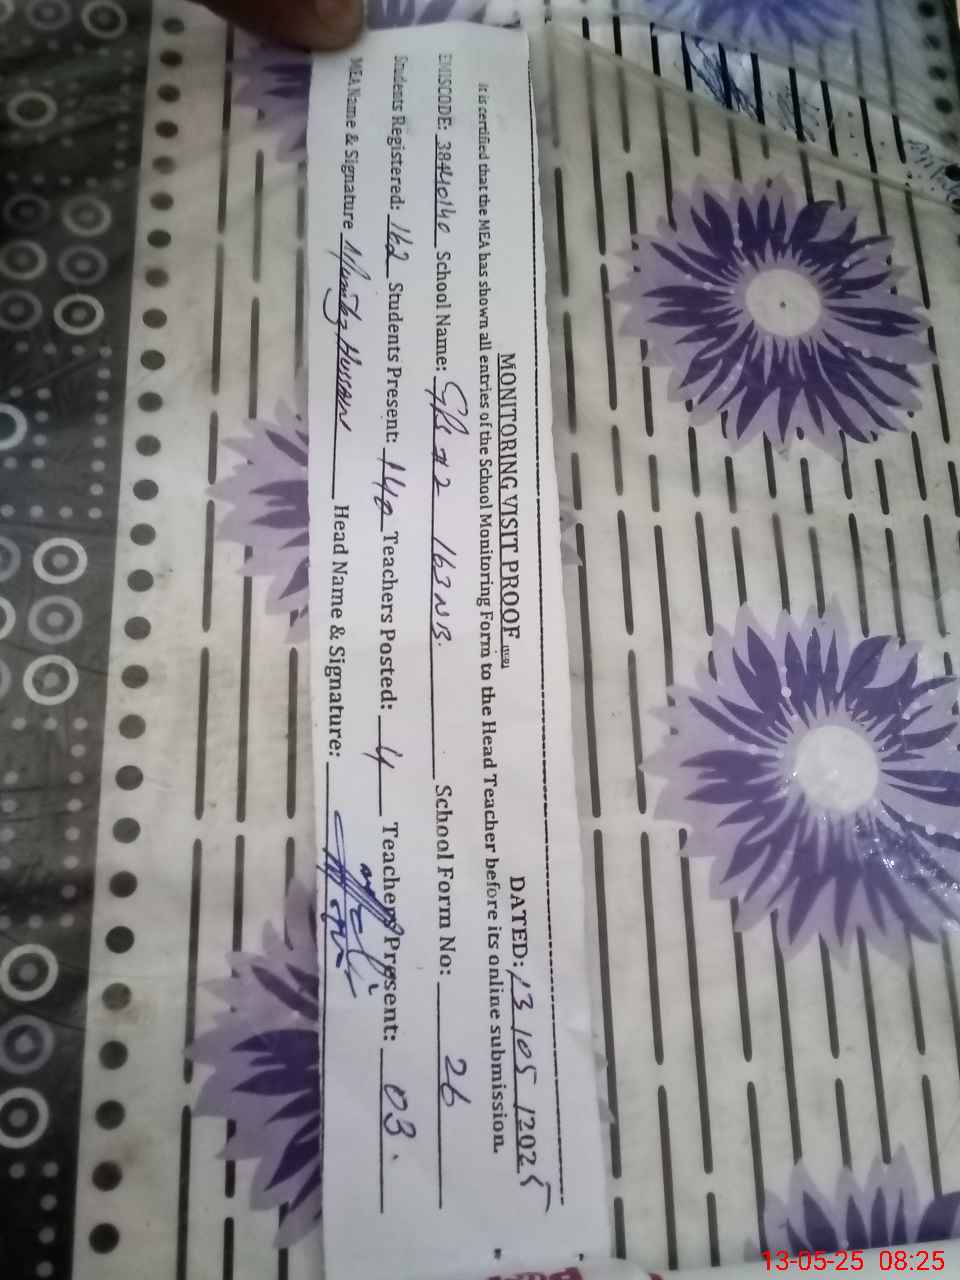 MONITORING VISIT PROOF DATED: 13/05/2025
It is certified that the MEA has shown all entries of the School Monitoring Form to the Head Teacher before its online submission.
EMISCODE: 38410140 School Name: GPS #2 163 NB. School Form No: 26
Students Registered: 162 Students Present: 140 Teachers Posted: 4 Teachers Present: 03.
MEA Name & Signature Head Name & Signature:
13-05-25 08:25